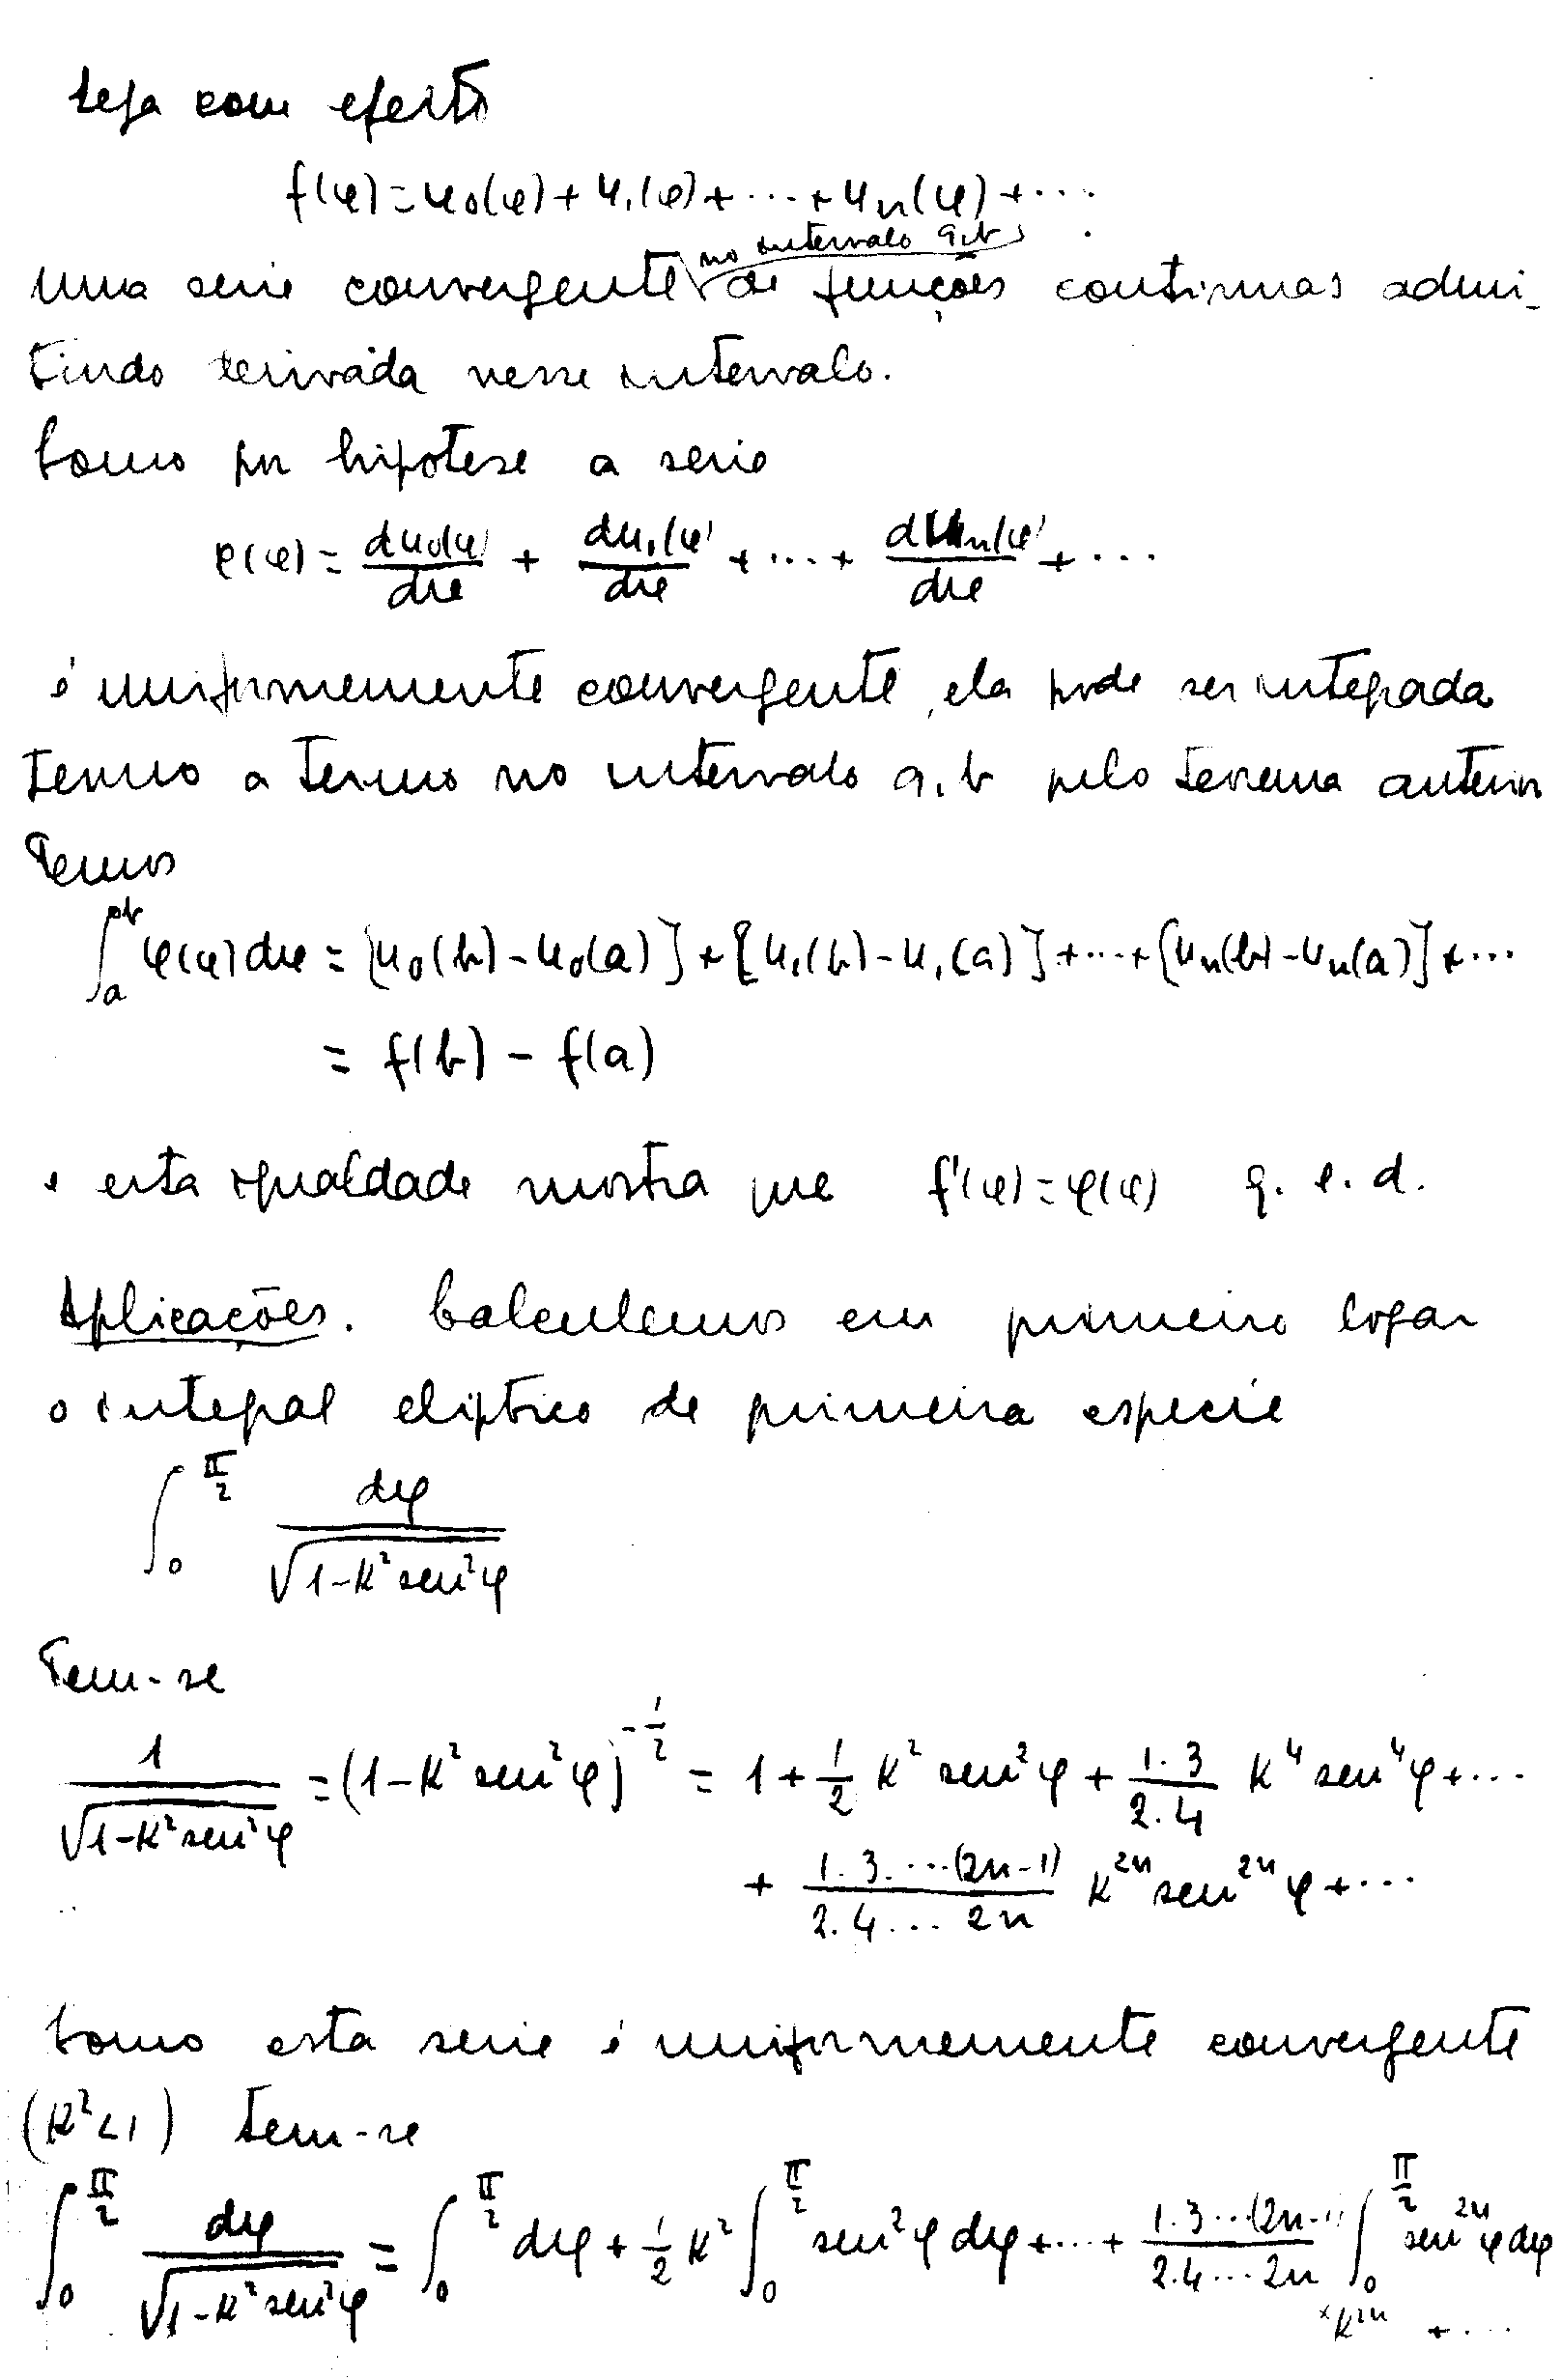 Seja com efeito
f(φ) = u₀(φ) + u₁(φ) + ··· + uₙ(φ) + ···
no intervalo a,b
uma serie convergente de funções continuas admi-
tindo derivada nesse intervalo.
Como por hipotese a serie
φ(φ) = du₀(φ)/dφ + du₁(φ)/dφ + ··· + duₙ(φ)/dφ + ···
é uniformemente convergente, ela pode ser integrada
termo a termo no intervalo a,b pelo teorema anterior
Temos
∫ₐᵇ φ(φ) dφ = [u₀(b) - u₀(a)] + [u₁(b) - u₁(a)] + ··· + [uₙ(b) - uₙ(a)] + ···
= f(b) - f(a)
e esta igualdade mostra que f'(φ) = φ(φ) q. e. d.
Aplicações. Calculemos em primeiro logar
o integral eliptico de primeira especie
∫₀^(π/2) dφ/√(1-K² sen²φ)
Tem-se
1/√(1-K² sen²φ) = (1-K² sen²φ)^(-1/2) = 1 + 1/2 K² sen²φ + 1.3/2.4 K⁴ sen⁴φ + ···
+ 1.3.···(2n-1)/2.4...2n K²ⁿ sen²ⁿ φ + ···
Como esta serie é uniformemente convergente
(K²<1) tem-se
∫₀^(π/2) dφ/√(1-K² sen²φ) = ∫₀^(π/2) dφ + 1/2 K² ∫₀^(π/2) sen²φ dφ + ··· + 1.3···(2n-1)/2.4···2n ∫₀^(π/2) sen²ⁿ φ dφ
× K²ⁿ + ···